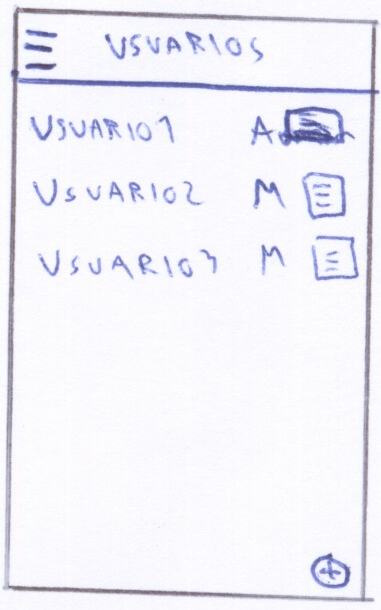 USUARIOS
USUARIO1 A
USUARIO2 M
USUARIO3 M